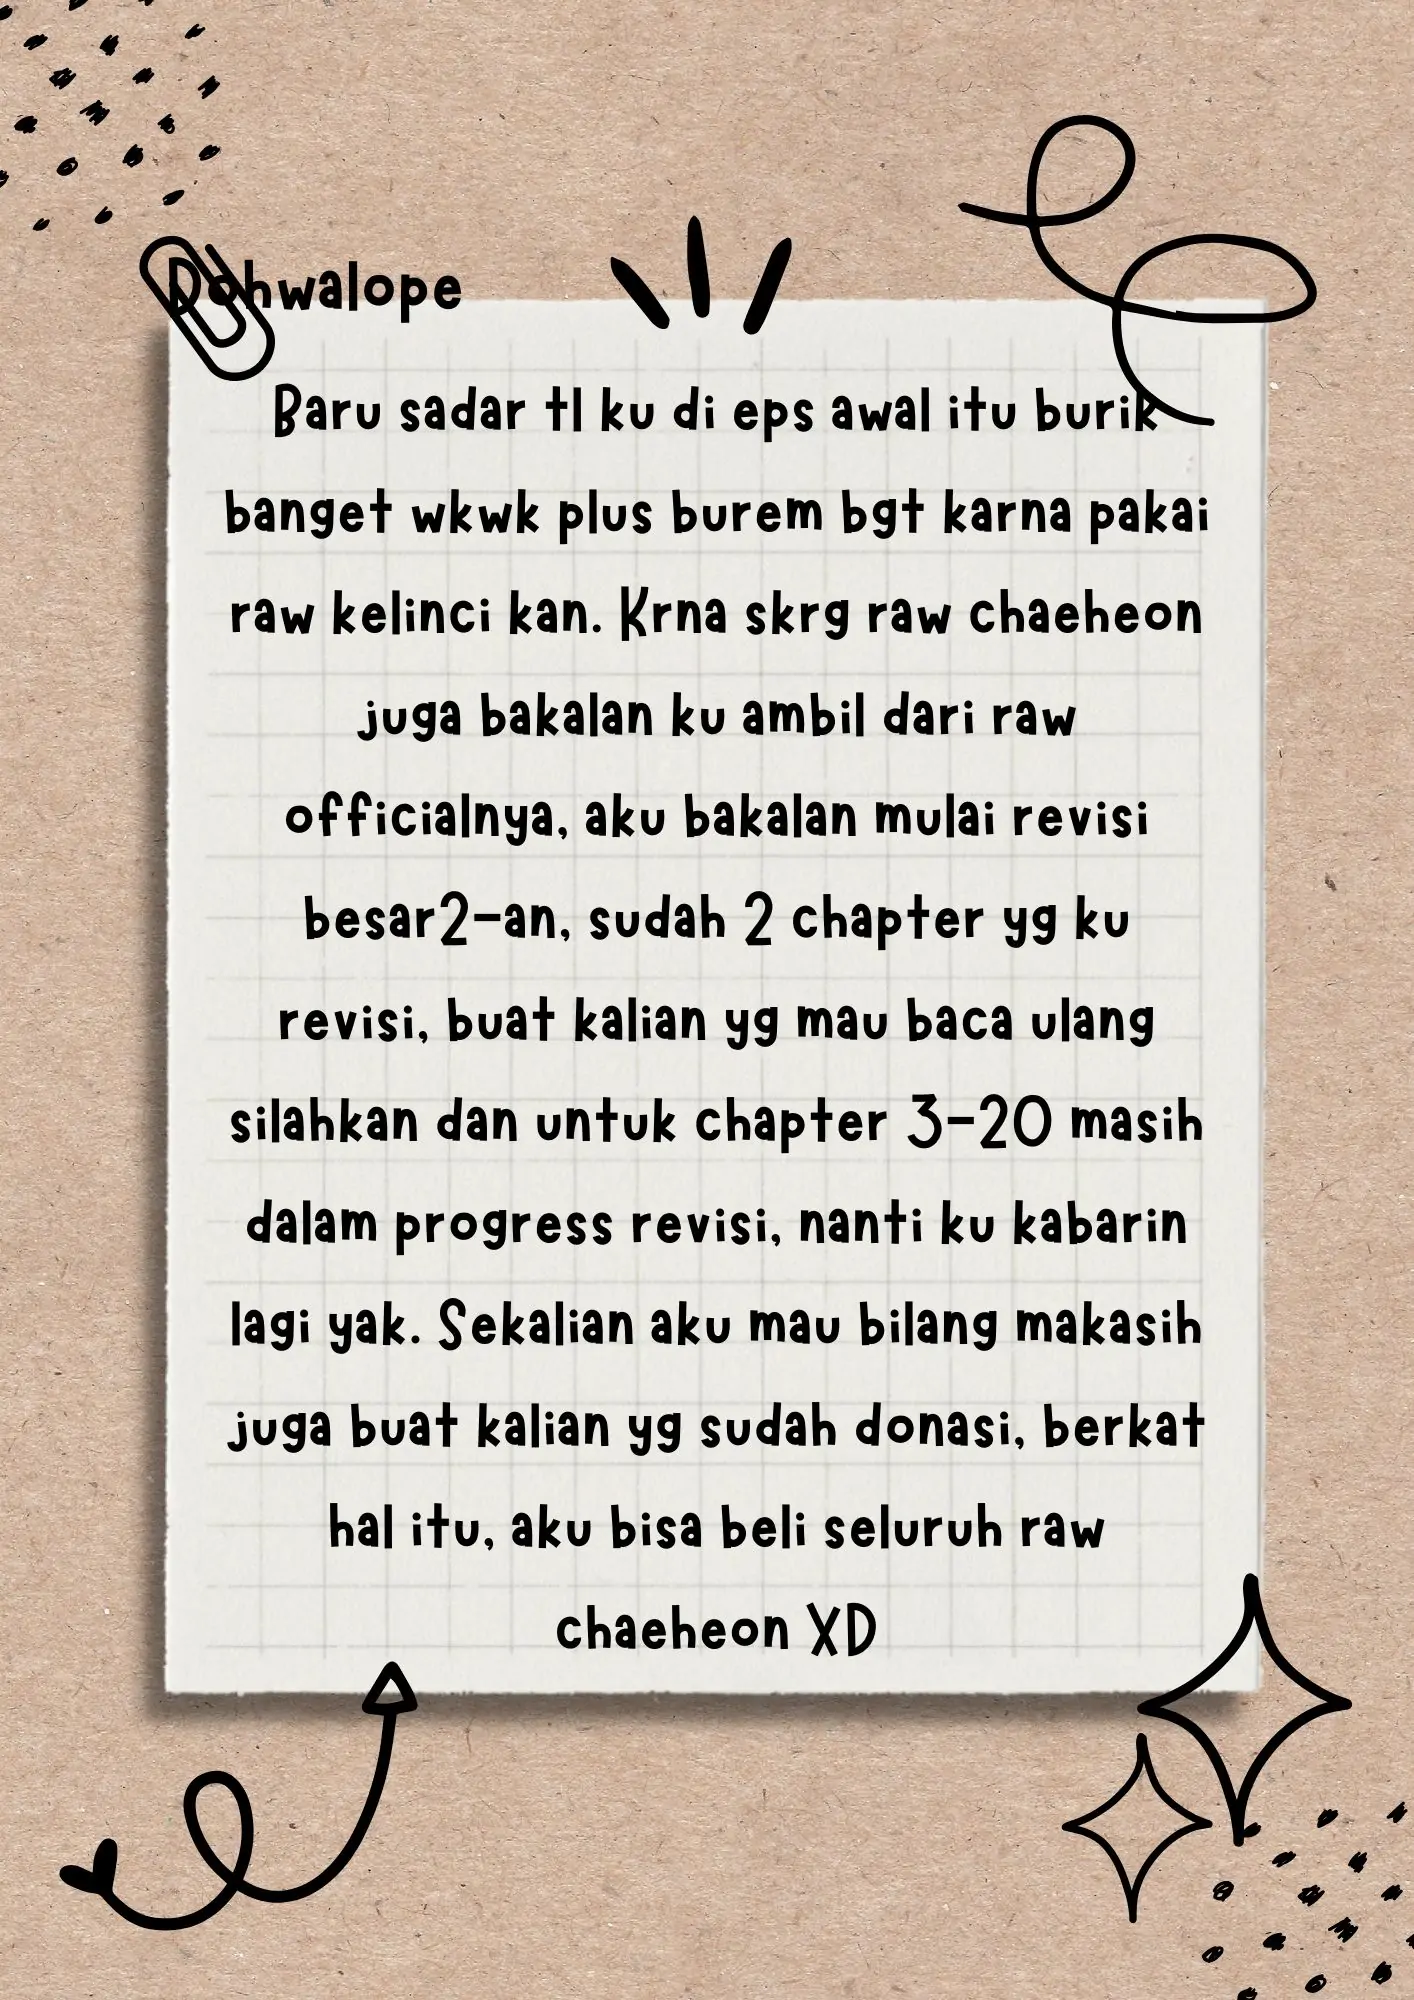 Dohwalope
Baru sadar tl ku di eps awal itu burik
banget wkwk plus burem bgt karna pakai
raw kelinci kan. Krna skrg raw chaeheon
juga bakalan ku ambil dari raw
officialnya, aku bakalan mulai revisi
besar2-an, sudah 2 chapter yg ku
revisi, buat kalian yg mau baca ulang
silahkan dan untuk chapter 3-20 masih
dalam progress revisi, nanti ku kabarin
lagi yak. Sekalian aku mau bilang makasih
juga buat kalian yg sudah donasi, berkat
hal itu, aku bisa beli seluruh raw
chaeheon XD